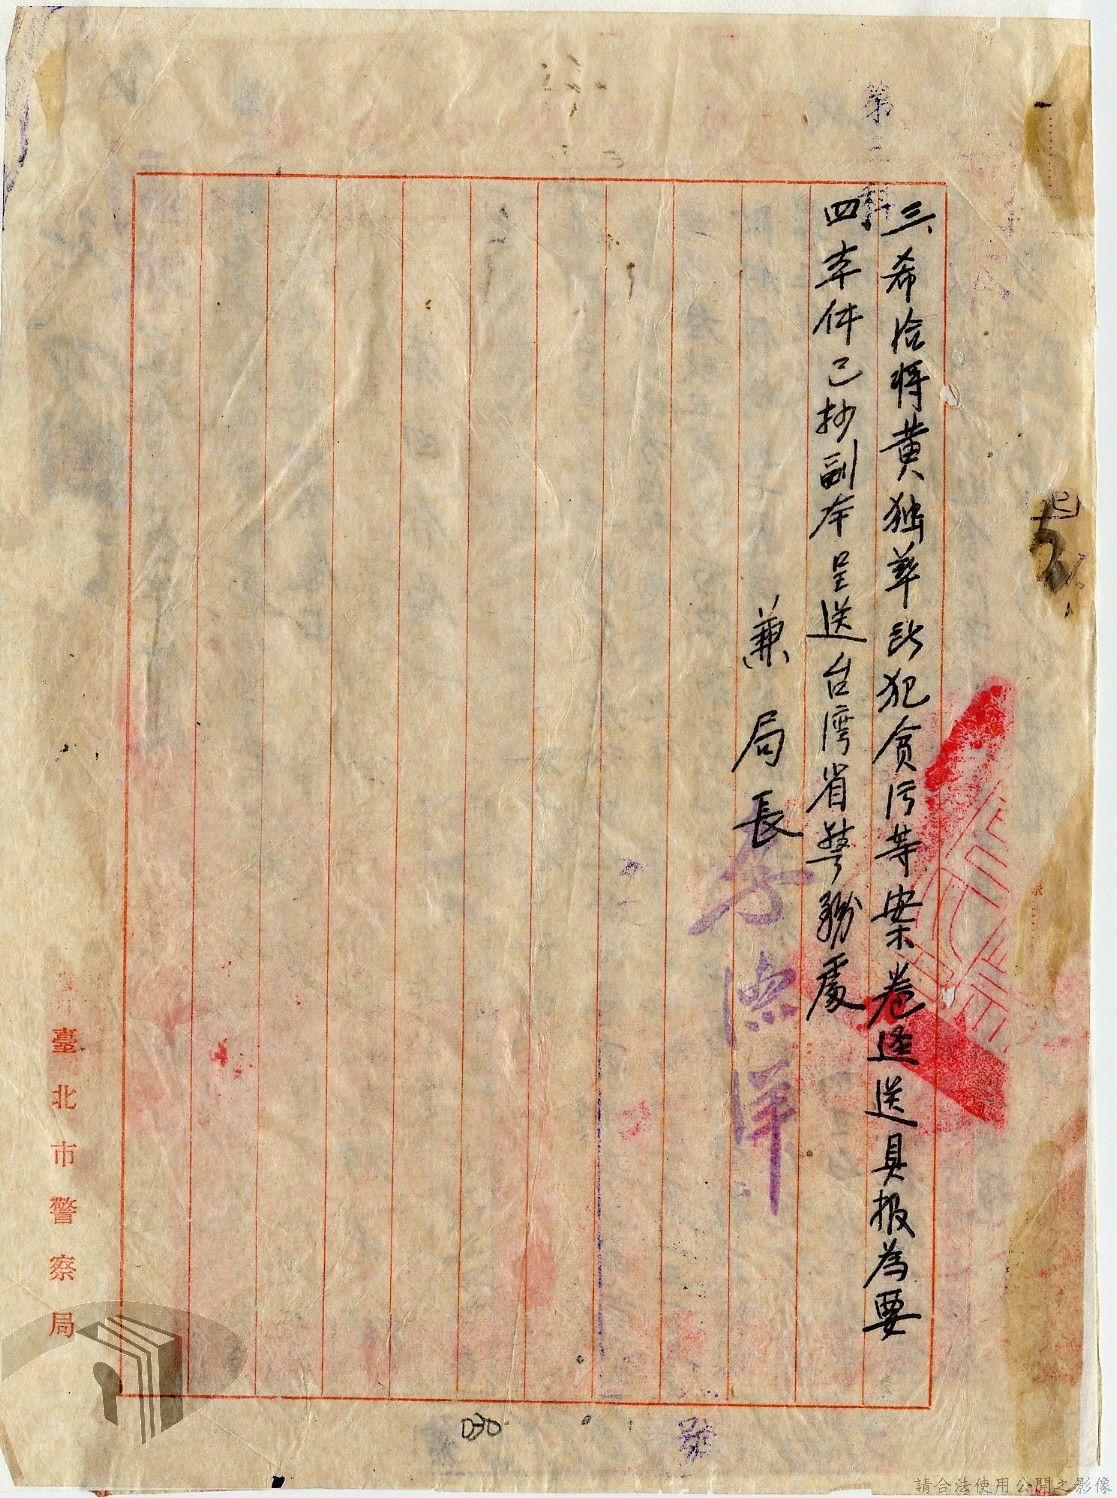 第三科
三、希洽將黃独華所犯貪污等案卷逕送具报為要
四、本件已抄副本呈送台湾省警务處
兼局長
李德洋
臺北市警察局
號
030
請合法使用公開之影像